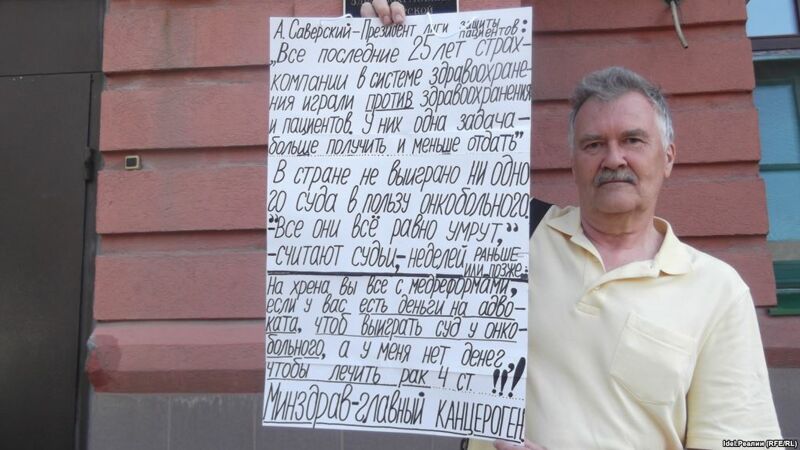 А. Саверский – Президент лиги защиты пациентов:
„Все последние 25 лет страх-
компании в системе здравоохране-
ния играли против здравоохранения
и пациентов. У них одна задача-
больше получить и меньше отдать"
В стране не выиграно ни одно
го суда в пользу онкобольного.
"Все они всё равно умрут,"
-считают судьи,-неделей раньше
или позже.
На хрена вы все с медреформами,
если у вас есть деньги на адво-
ката, чтоб выиграть суд у онко-
больного, а у меня нет денег,
чтобы лечить рак 4 ст. !!!
Минздрав-главный канцероген
Idel.Реалии (RFE/RL)